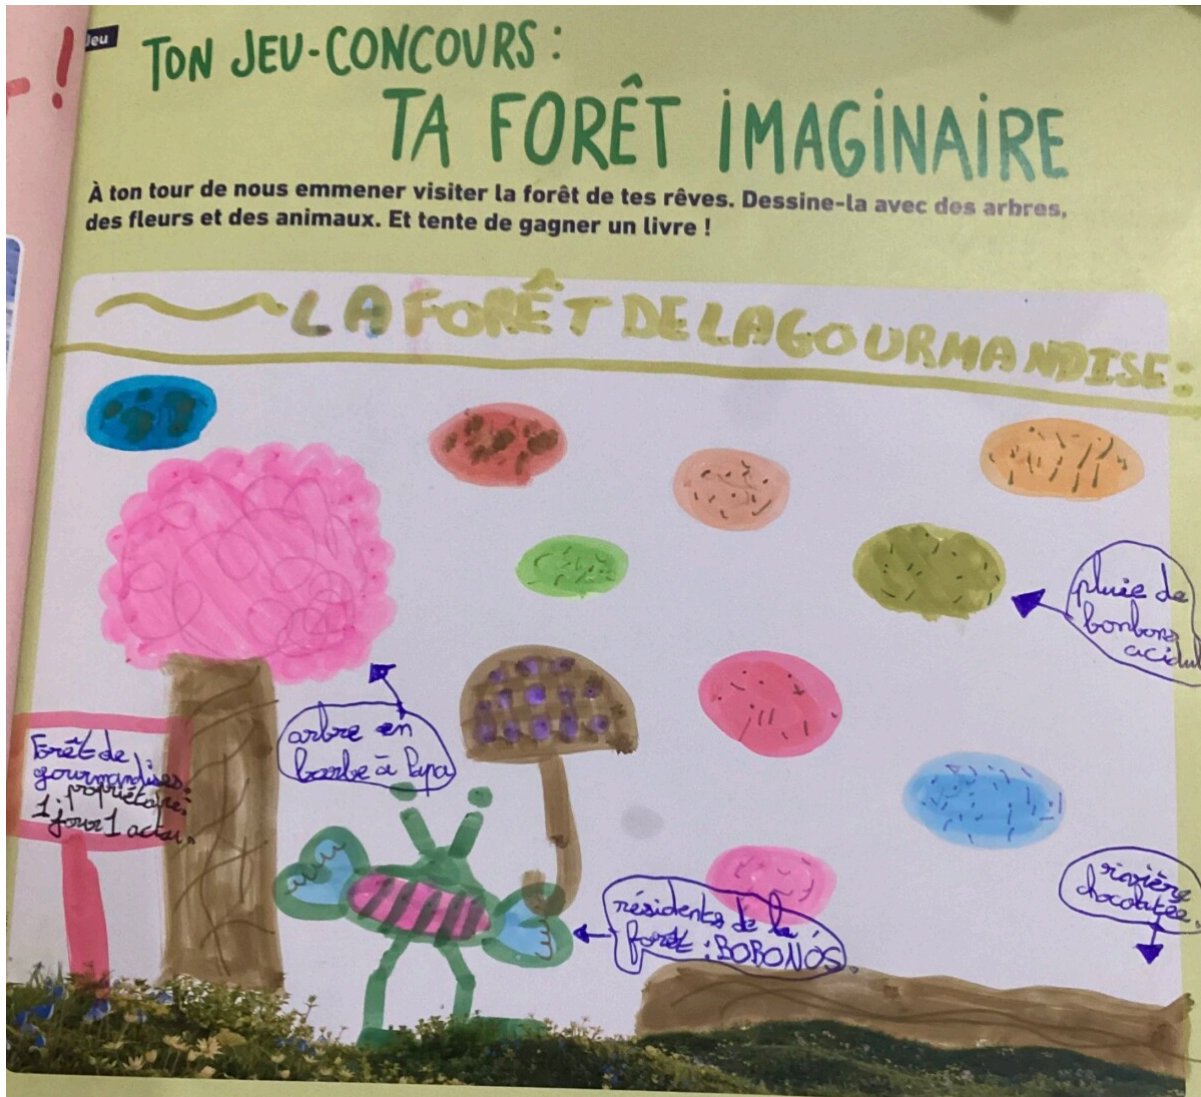 Jeu
TON JEU-CONCOURS :
TA FORÊT IMAGINAIRE
À ton tour de nous emmener visiter la forêt de tes rêves. Dessine-la avec des arbres,
des fleurs et des animaux. Et tente de gagner un livre !
LA FORÊT DE LA GOURMANDISE :
pluie de
bonbons
acidul
arbre en
barbe à Papa
Forêt de
gourmandises.
propriétaire:
1 jour 1 actu.
rivière
chocolatée
résidents de la
forêt : BOBONOS.